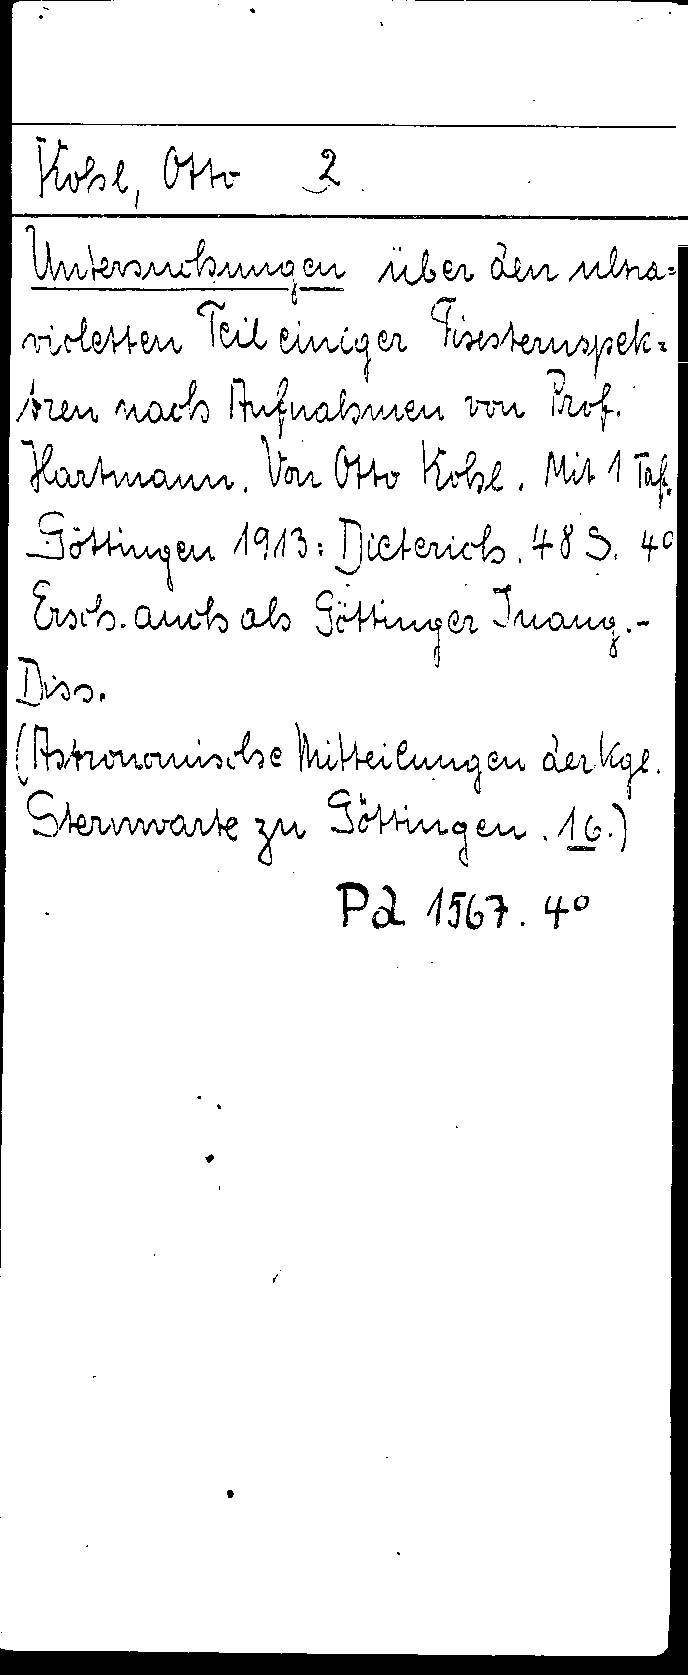 Kohl, Otto 2
Untersuchungen über den ultra=
violetten Teil einiger Fixsternspek=
tren nach Aufnahmen von Prof.
Hartmann. Von Otto Kohl. Mit 1 Taf.
Göttingen 1913: Dieterich. 48 S. 4°
Ersch. auch als Göttinger Inaug.-
Diss.
(Astronomische Mitteilungen der Kgl.
Sternwarte zu Göttingen. 16.)
Pd 1567. 4°